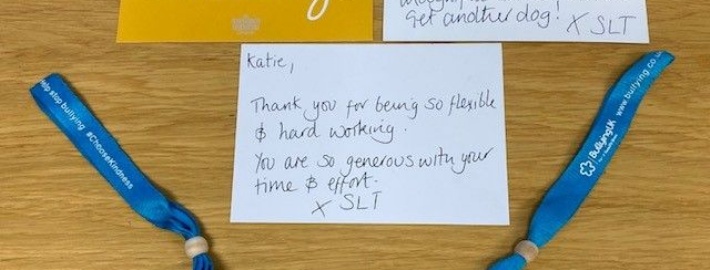 get another dog!
X SLT
Katie,
Thank you for being so flexible
& hard working.
You are so generous with your
time & effort.
X SLT
help stop bullying #ChooseKindness
BullyingUK www.bullying.co